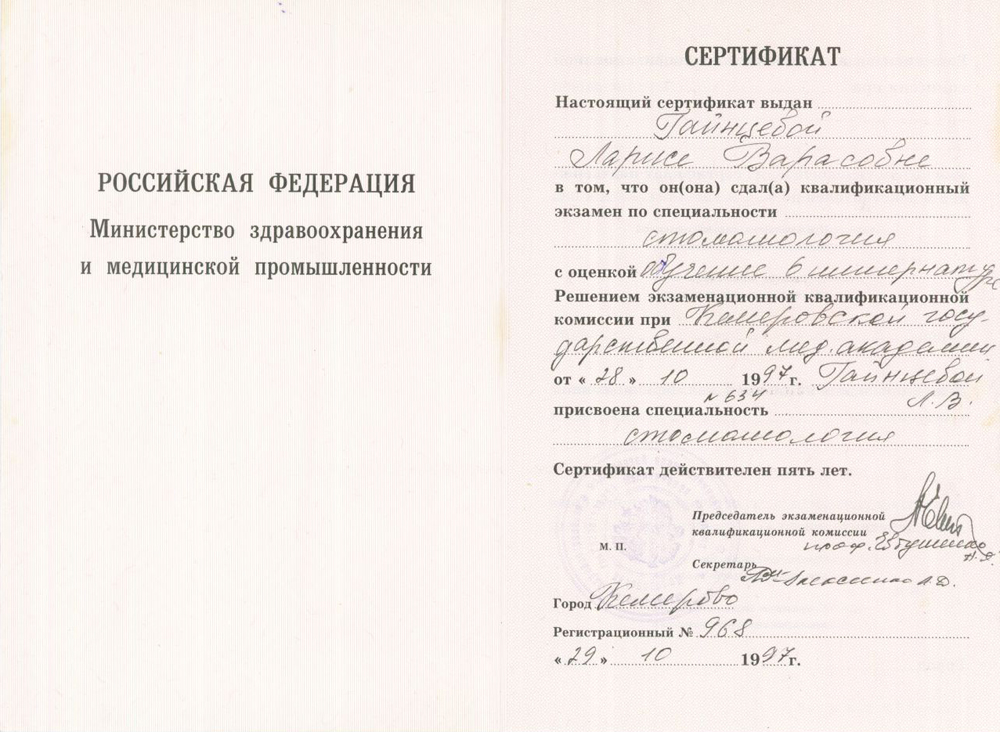 РОССИЙСКАЯ ФЕДЕРАЦИЯ
Министерство здравоохранения
и медицинской промышленности
СЕРТИФИКАТ
Настоящий сертификат выдан
Гайнцевой
Ларисе Варасовне
в том, что он(она) сдал(а) квалификационный
экзамен по специальности
стоматология
с оценкой обучение в интернатуре
Решением экзаменационной квалификационной
комиссии при Кемеровской госу-
дарственной мед. академии
от « 28 » 10 1997 г. Гайнцевой
№ 634 Л.В.
присвоена специальность
стоматология
Сертификат действителен пять лет.
Председатель экзаменационной
квалификационной комиссии
проф. Евтушенко
М. П.
Секретарь
Город Кемерово
Регистрационный № 968
« 29 » 10 1997 г.